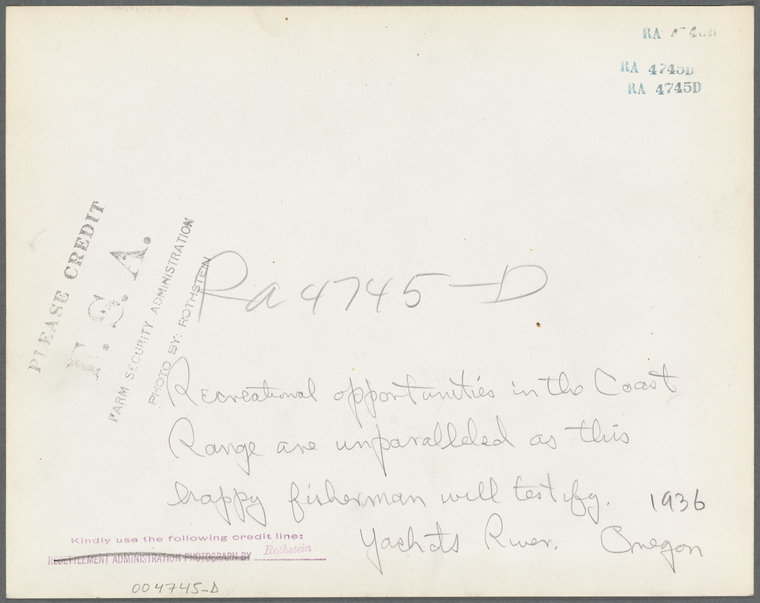 RA 4745D
RA 4745D
RA 4745D
PLEASE CREDIT
F.S.A.
FARM SECURITY ADMINISTRATION
PHOTO BY: ROTHSTEIN
Ra 4745-D
Recreational opportunities in the Coast
Range are unparalleled as this
happy fisherman will testify. 1936
Yachats River. Oregon
Kindly use the following credit line:
RESETTLEMENT ADMINISTRATION PHOTOGRAPH BY Rothstein
004745-D